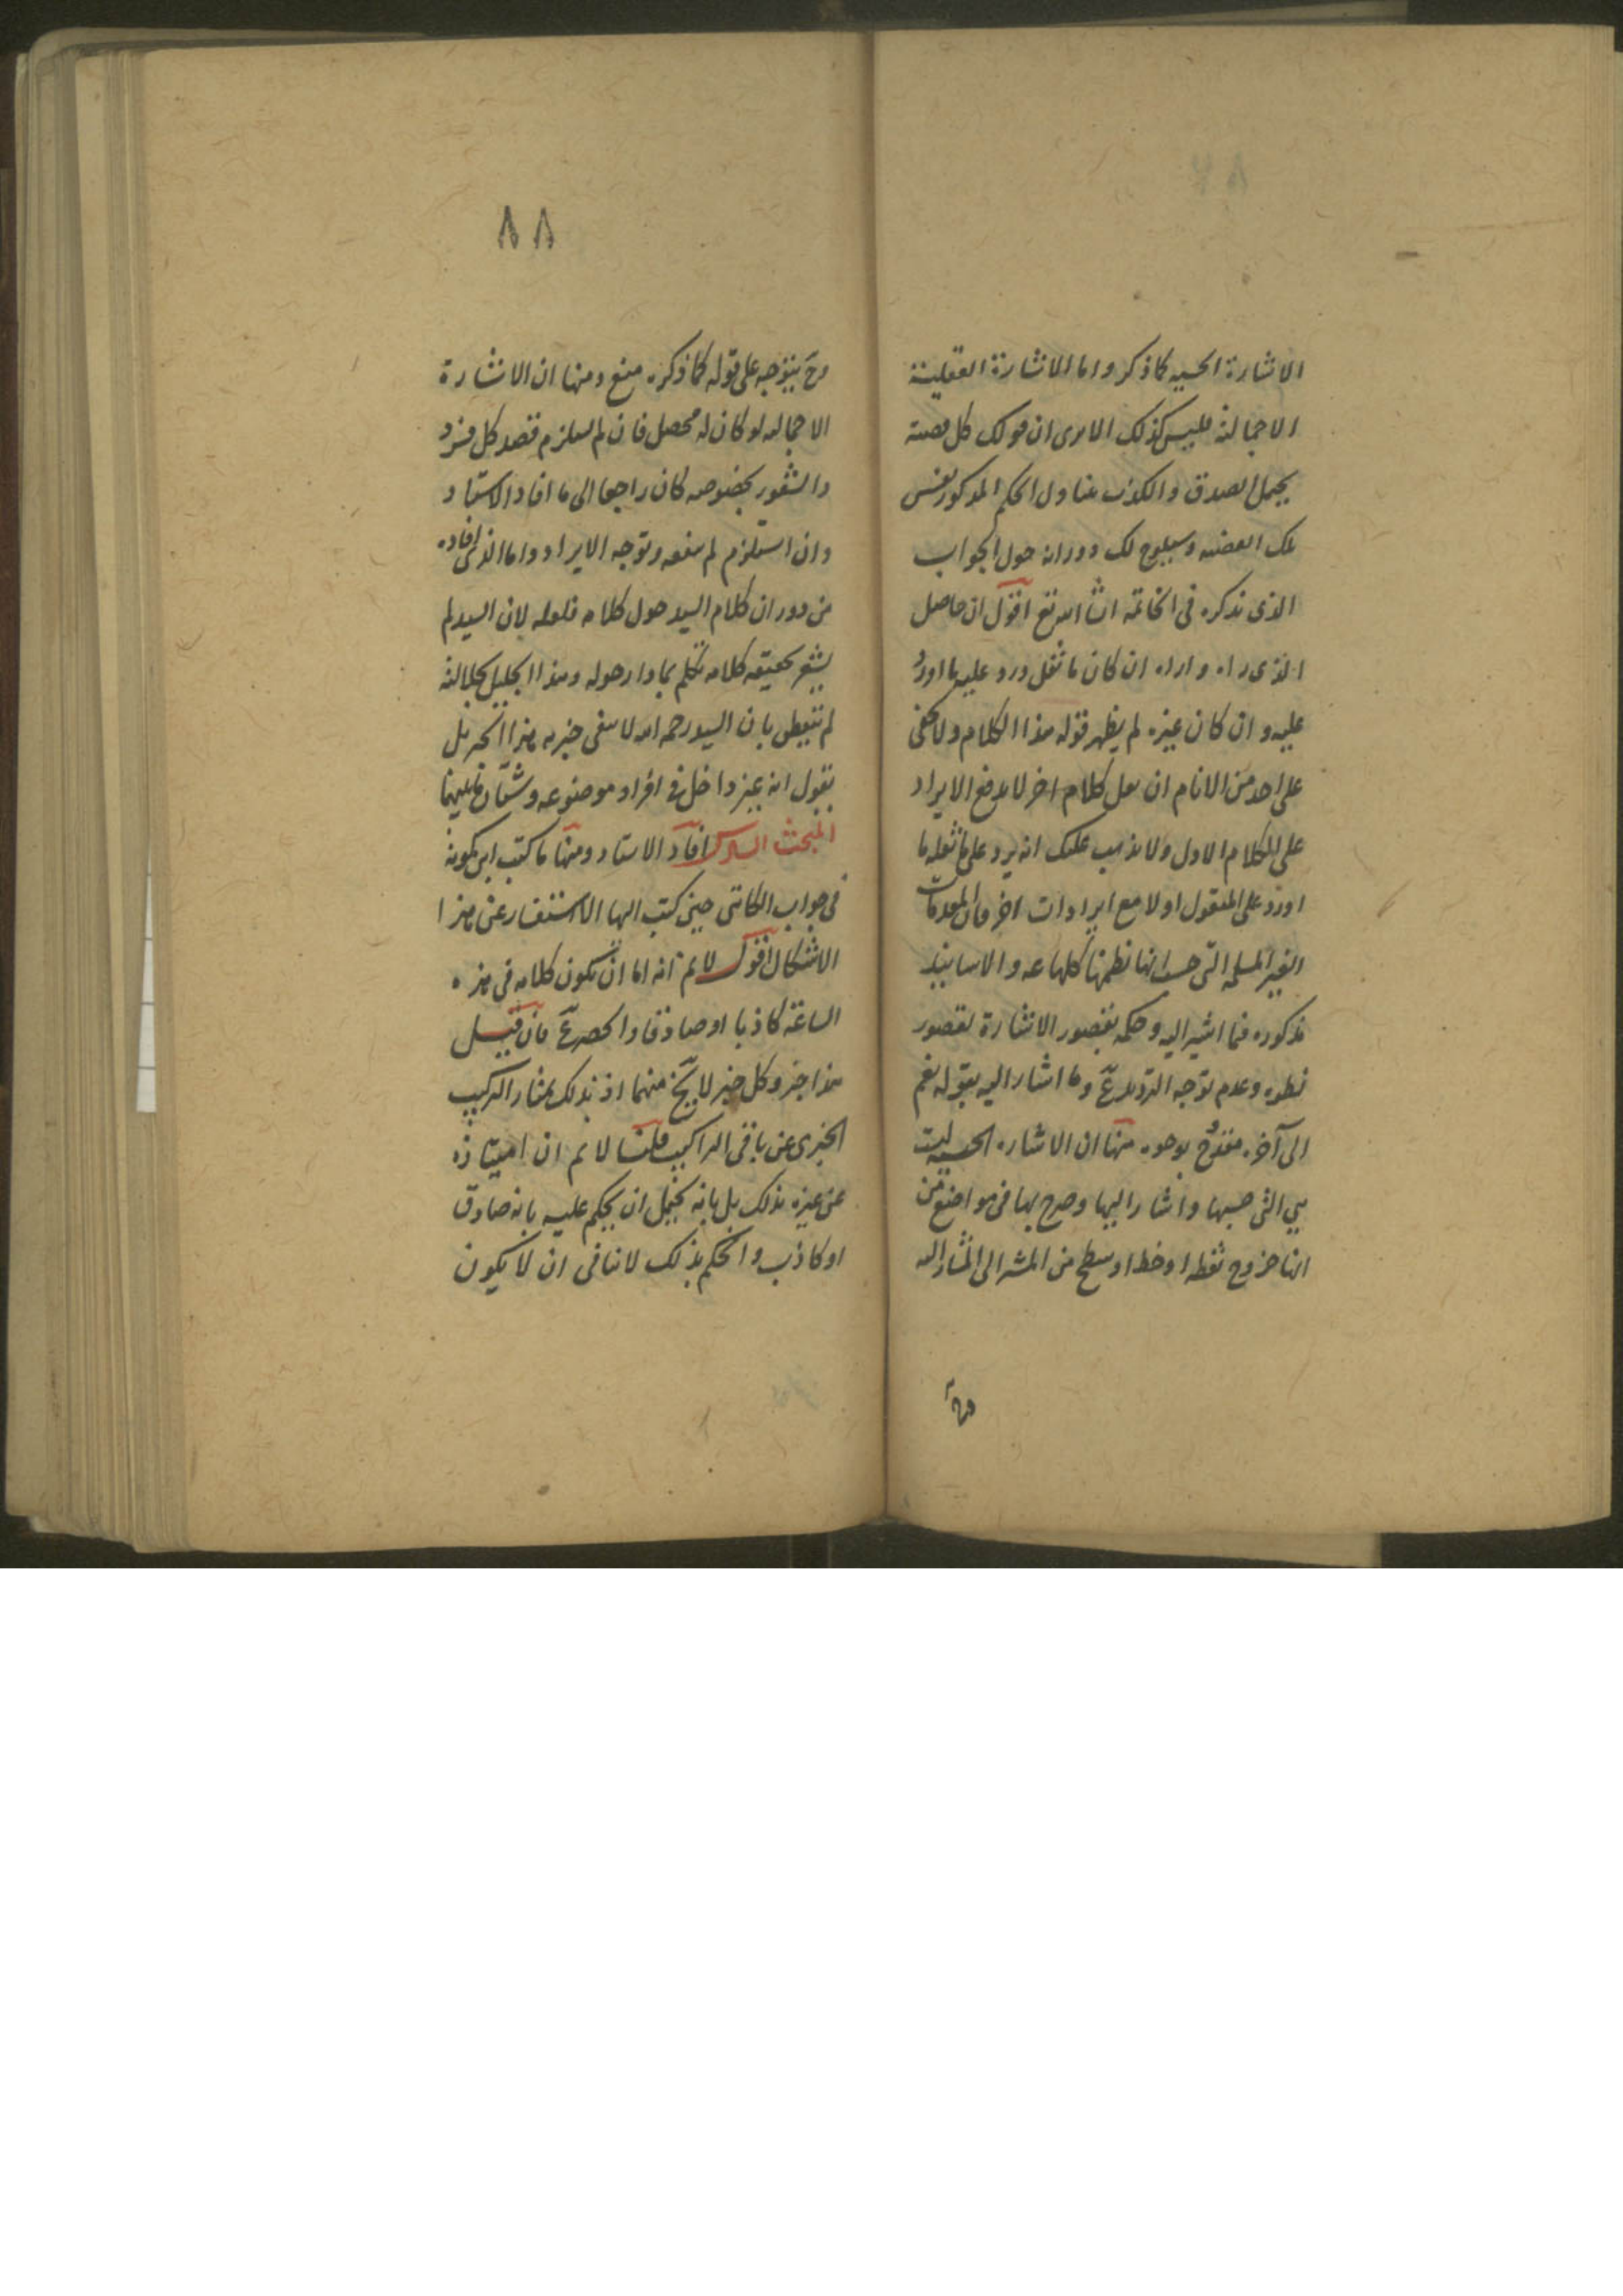 الاشارة الحسيه كما ذكر واما الاشارة العقلية
الاجمالية فليس كذلك الا يرى ان قولك كل قضية
يحتمل الصدق والكذب يتناول الحكم المذكور نفس
تلك القضيه وسيلوح لك دورانه حول الجواب
الذى نذكره فى الخاتمه ان شا الله تع اقول ان حاصل
الذى راه واراه ان كان ما نقل ورد عليه ما اورد
عليه و ان كان غيره لم يظهر قوله هذا الكلام ولا يخفى
على احد من الانام ان نقل كلام اخر لا يدفع الايراد
على الكلام الاول ولا يذهب عليك انه يرد على ما نقله ما
اورد على المنقول اولا مع ايرادات اخر فان المقدمات
الغير المسلمه التى حسب انها نظمها كلها عه والاسانيد
مذكوره فيما اشير اليه وحكمه بقصور الاشارة لقصور
نظره وعدم توجه الترديد عَ وما اشار اليه بقوله نعم
الى آخره مقدوح بوجوه منها ان الاشاره الحسيه ليست
هى التى حسبها واشار اليها وصرح بها فى مواضع من
انها خروج نقطه او خط او سطح من المشير الى المشار اليه
وحَ
٨٨
وحَ يتوجه على قوله كما ذكره منع ومنها ان الاشارة
الاجماليه لو كان له محصل فان لم يستلزم قصد كل فرد
والشعور بخصوصه كان راجعا الى ما افاد الاستاد
وان استلزم لم ينفعه وتوجه الايراد واما الذى افاده
من دوران كلام السيد حول كلامه فلعله لان السيد لم
يشعر بحقيقه كلامه تكلم بما دار حوله وهذا الجليل بجلالته
لم يتفطن بان السيد رحمه الله لا ينفى خبريه هذا الخبر بل
يقول انه غير داخل فى افراد موضوعه وشتان ما بينهما
المبحث السادس افاد الاستاد ومنها ما كتب ابن كمونه
فى جواب الكاتبى حين كتب اليها الاستفسار عن هذا
الاشكال اقول لا نم انه اما ان يكون كلامه فى هذه
الساعة كاذبا او صادقا والحصر عَ فان قيل
هذا خبر وكل خبر لا يخَ منهما اذ بذلك يمتاز التركيب
الخبرى عن باقى التراكيب قلنا لا نم ان امتيازه
عن غيره بذلك بل بانه يحتمل ان يحكم عليه بانه صادق
او كاذب والحكم بذلك لا ينافى ان لا يكون